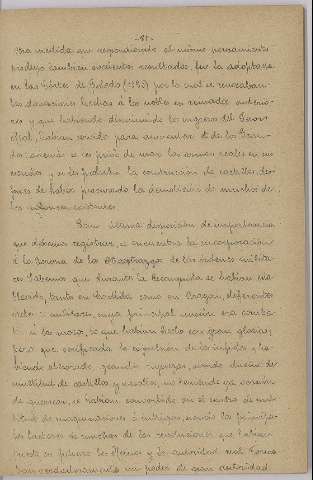 -81-
Otra medida que respondiendo al mismo pensamiento
produjo también excelentes resultados, fué la adoptada
en las Cortes de Toledo (1480) por la cual se revocaban
las donaciones hechas á los nobles en reinados anterio-
res y que habiendo disminuido los ingresos del Tesoro
Real, habían servido para aumentar el de los Gran-
des; además se les privó de usar las armas reales en sus
escudos y se les prohibió la construcción de castillos des-
pues de haber procurado la demolición de muchos de
los existentes
Como última disposición de importancia
que debemos registrar, se encuentra la incorporación
á la Corona de los Maestrazgos de las órdenes milita-
res. Sabemos que durante la Reconquista se habían
creado, tanto en Castilla como en Aragón, diferentes
ordenes militares, cuya principal misión era comba-
tir á los moros, lo que habían hecho con gran gloria;
pero que verificada la expulsión de los infieles, y ha-
biendo atesorado grandes riquezas, siendo dueños de
multitud de castillos y no teniendo ya ocasión
de guerrear, se habían convertido en el centro de mul-
titud de maquinaciones é intrigas, siendo los principa-
les factores de muchas de las revoluciones que habían
puesto en peligro los Reinos y la autoridad real. Como
eran verdaderamente un poder de gran autoridad